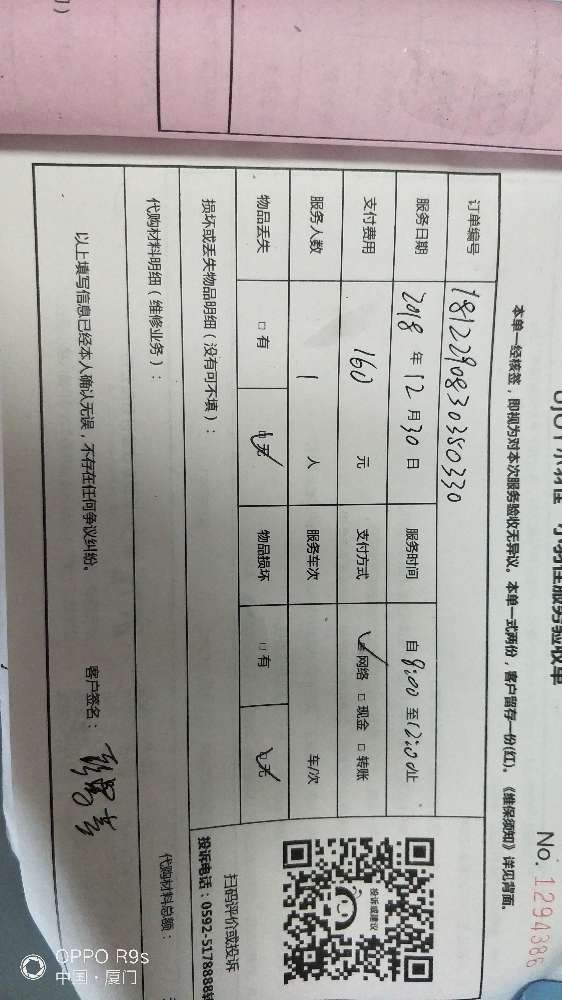 No. 1294386
本单一经核签，即视为对本次服务验收无异议。本单一式两份，客户留存一份(红)。《维保须知》详见背面。
订单编号 1812290830380330
服务日期 2018 年 12 月 30 日 服务时间 自 8:00 至 12:00 止
支付费用 160 元 支付方式 网络 □ 现金 □ 转账
服务人数 1 人 服务车次 车/次
物品丢失 □ 有 □ 无 物品损坏 □ 有 □ 无
损坏或丢失物品明细（没有可不填）：
投诉或建议
扫码评价或投诉
投诉电话：0592-5178888转
代购材料明细（维修业务）：
代购材料总额：
以上填写信息已经本人确认无误，不存在任何争议纠纷。
客户签名：
OPPO R9s
中国·厦门